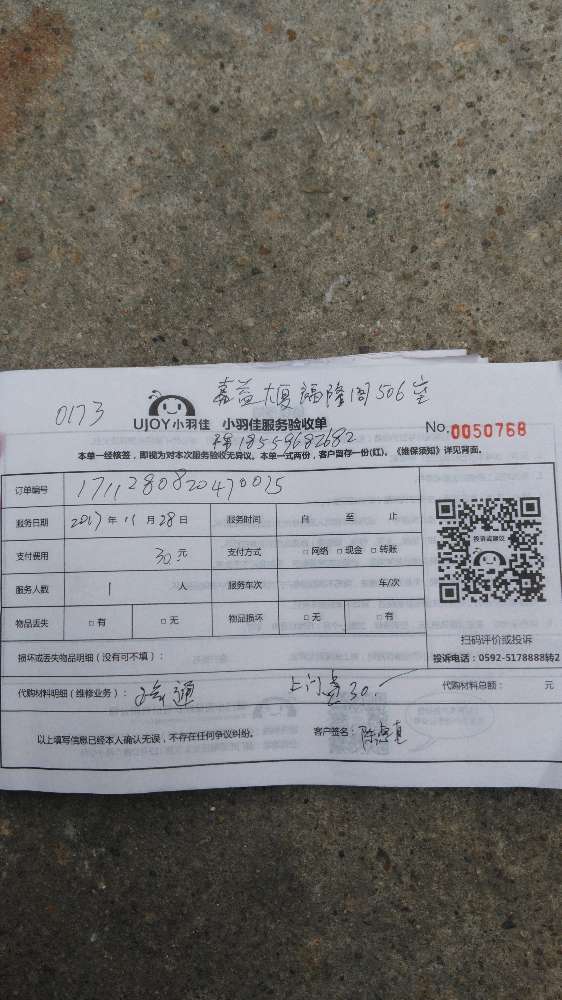 0173 嘉益大厦福隆阁506室
UJOY小羽佳 小羽佳服务验收单 No.0050768
18559682682
本单一经核签，即视为对本次服务验收无异议。本单一式两份，客户留存一份(红)。《维保须知》详见背面。
订单编号 1711280820470015
服务日期 2017年11月28日 服务时间 自 至 止
支付费用 30元 支付方式 □网络 □现金 □转账
服务人数 1 人 服务车次 车/次
物品丢失 □有 □无 物品损坏 □无 □有
投诉或建议
扫码评价或投诉
投诉电话：0592-5178888转2
损坏或丢失物品明细（没有可不填）：
代购材料明细（维修业务）： 通 上门费30.- 代购材料总额： 元
以上填写信息已经本人确认无误，不存在任何争议纠纷。 客户签名：陈